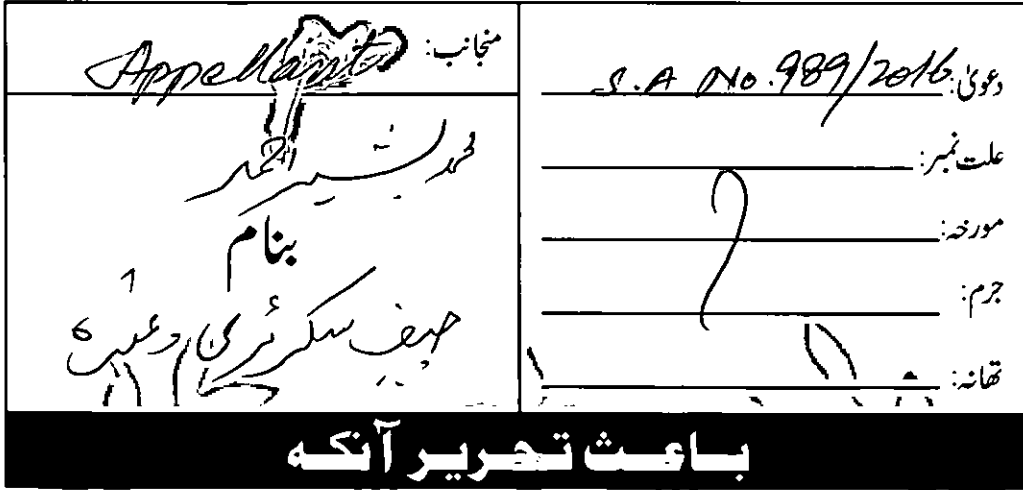 دعویٰ: S.A No. 989/2016
علت نمبر:
مورخہ:
جرم:
تھانہ:
منجانب: Appellant
محمد بشیر احمد
بنام
چیف سکرٹری وغیرہ
باعث تحریر آنکہ